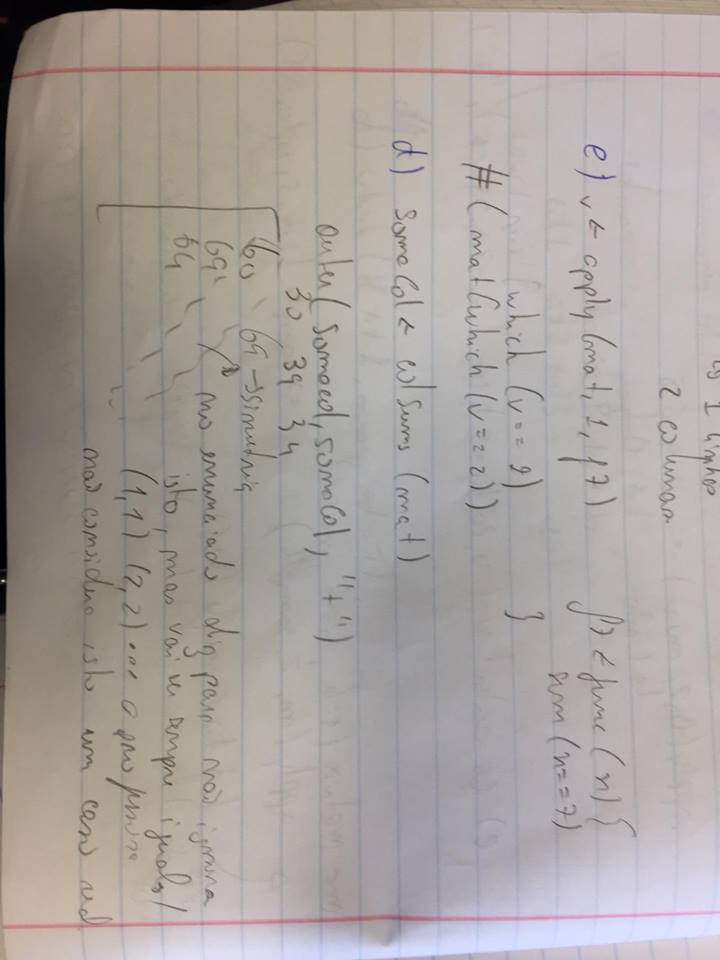 1 linhas
2 colunas
e) v ← apply (mat, 1, f7)
f7 ← func (n) {
sum (n==7)
}
(which (v == 2)
# ( mat(which (v==2))
d) somaCol ← colSums (mat)
outer( somacol, somaCol, "+")
30 39 34
60 69 → simetria
69 no enunciado diz para não ignorar
64 isto, mas vai ser sempre igual
(1,1) (2,2) ... o
não considera isto um caso